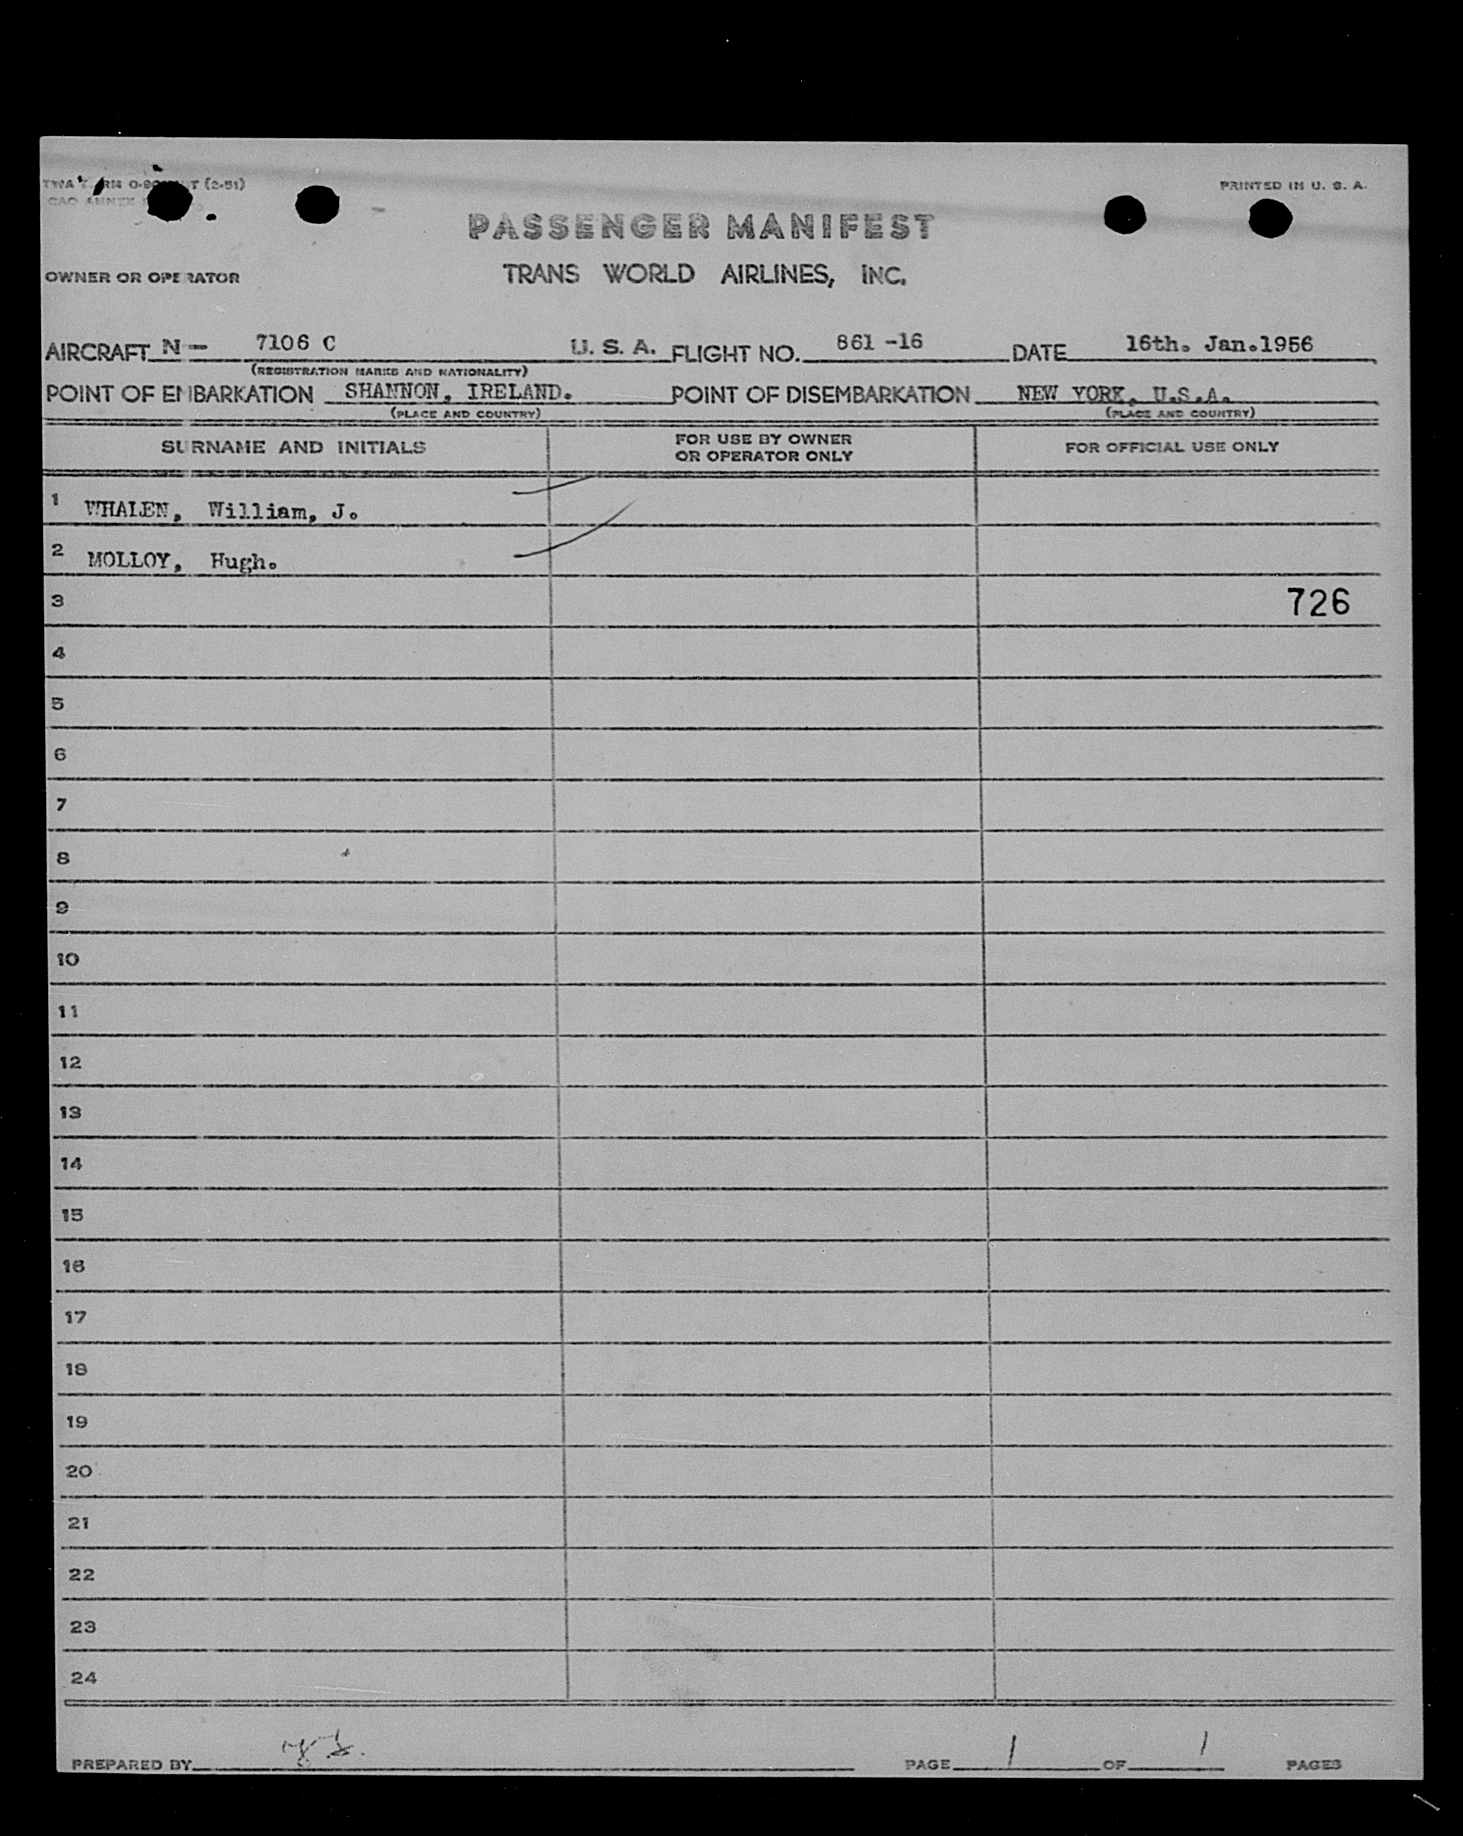 PRINTED IN U. S. A.
PASSENGER MANIFEST
OWNER OR OPERATOR
TRANS WORLD AIRLINES, INC.
AIRCRAFT N- 7106 C U. S. A. FLIGHT NO. 861 -16 DATE 16th. Jan.1956
(REGISTRATION MARKS AND NATIONALITY)
POINT OF EMBARKATION SHANNON, IRELAND. POINT OF DISEMBARKATION NEW YORK, U.S.A.
(PLACE AND COUNTRY) (PLACE AND COUNTRY)
SURNAME AND INITIALS FOR USE BY OWNER OR OPERATOR ONLY FOR OFFICIAL USE ONLY
1 WHALEN, William, J.
2 MOLLOY, Hugh.
3 726
4
5
6
7
8
9
10
11
12
13
14
15
16
17
18
19
20
21
22
23
24
PREPARED BY PAGE 1 OF 1 PAGES